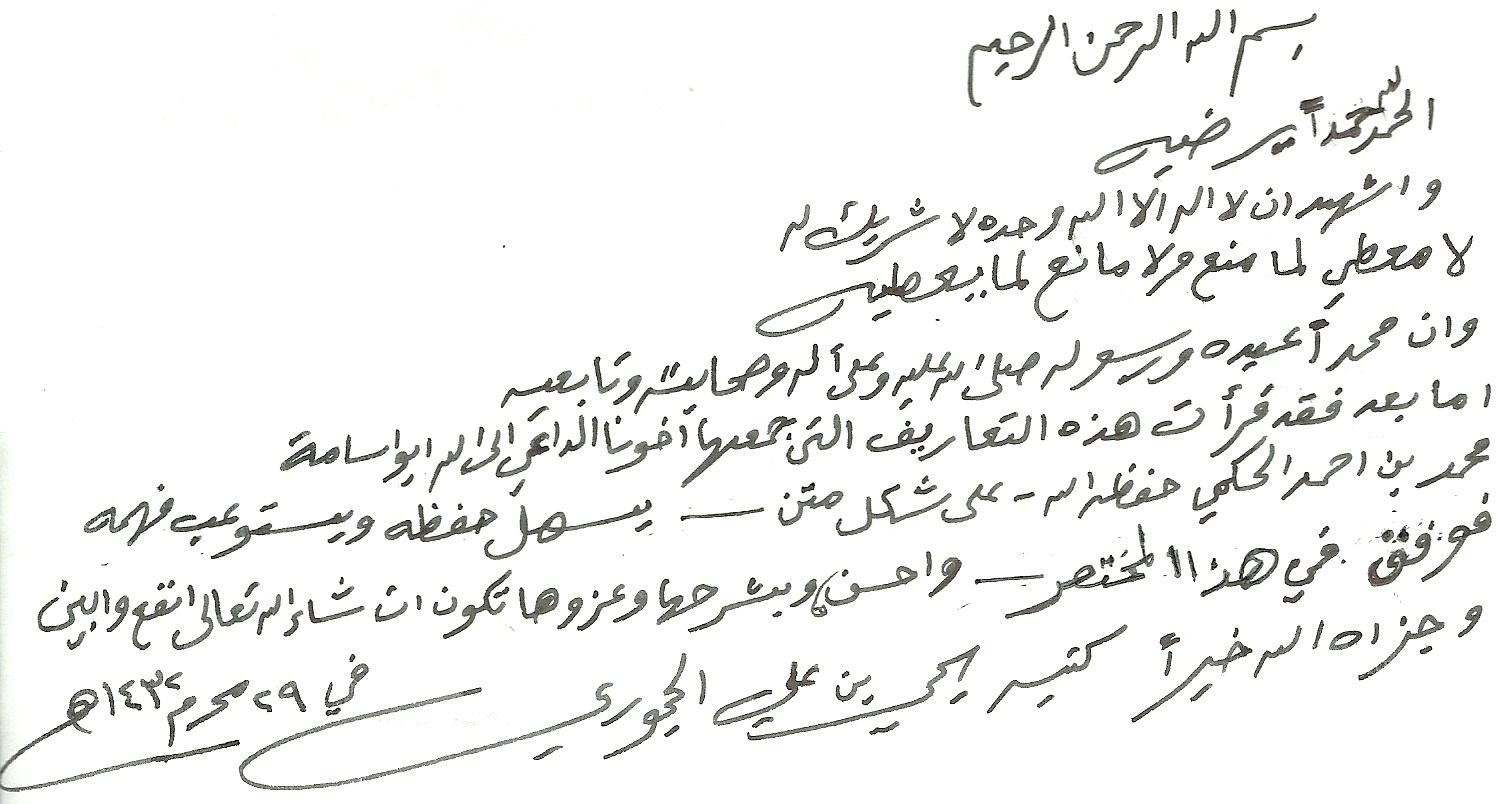 بسم الله الرحمن الرحيم
الحمد لله حمداً يرضيه
واشهد ان لا اله الا الله وحده لا شريك له
لا معطي لما منع ولا مانع لما يعطيه
وان محمداً عبده ورسوله صلى الله عليه وعلى أله وصحابته وتابعيه
اما بعد فقد قرأت هذه التعاريف التي جمعها أخونا الداعي الى الله ابو اسامة
محمد بن احمد الحكمي حفظه الله - على شكل متن - يسهل حفظه ويستوعب فهمه
فوفق في هذا المختصر - واحسن، وبشرحها وعزوها تكون ان شاء الله تعالى انفع وابين
وجزاه الله خيراً كتبه يحيى بن علي الحجوري
في ٢٩ محرم ١٤٣٢هـ